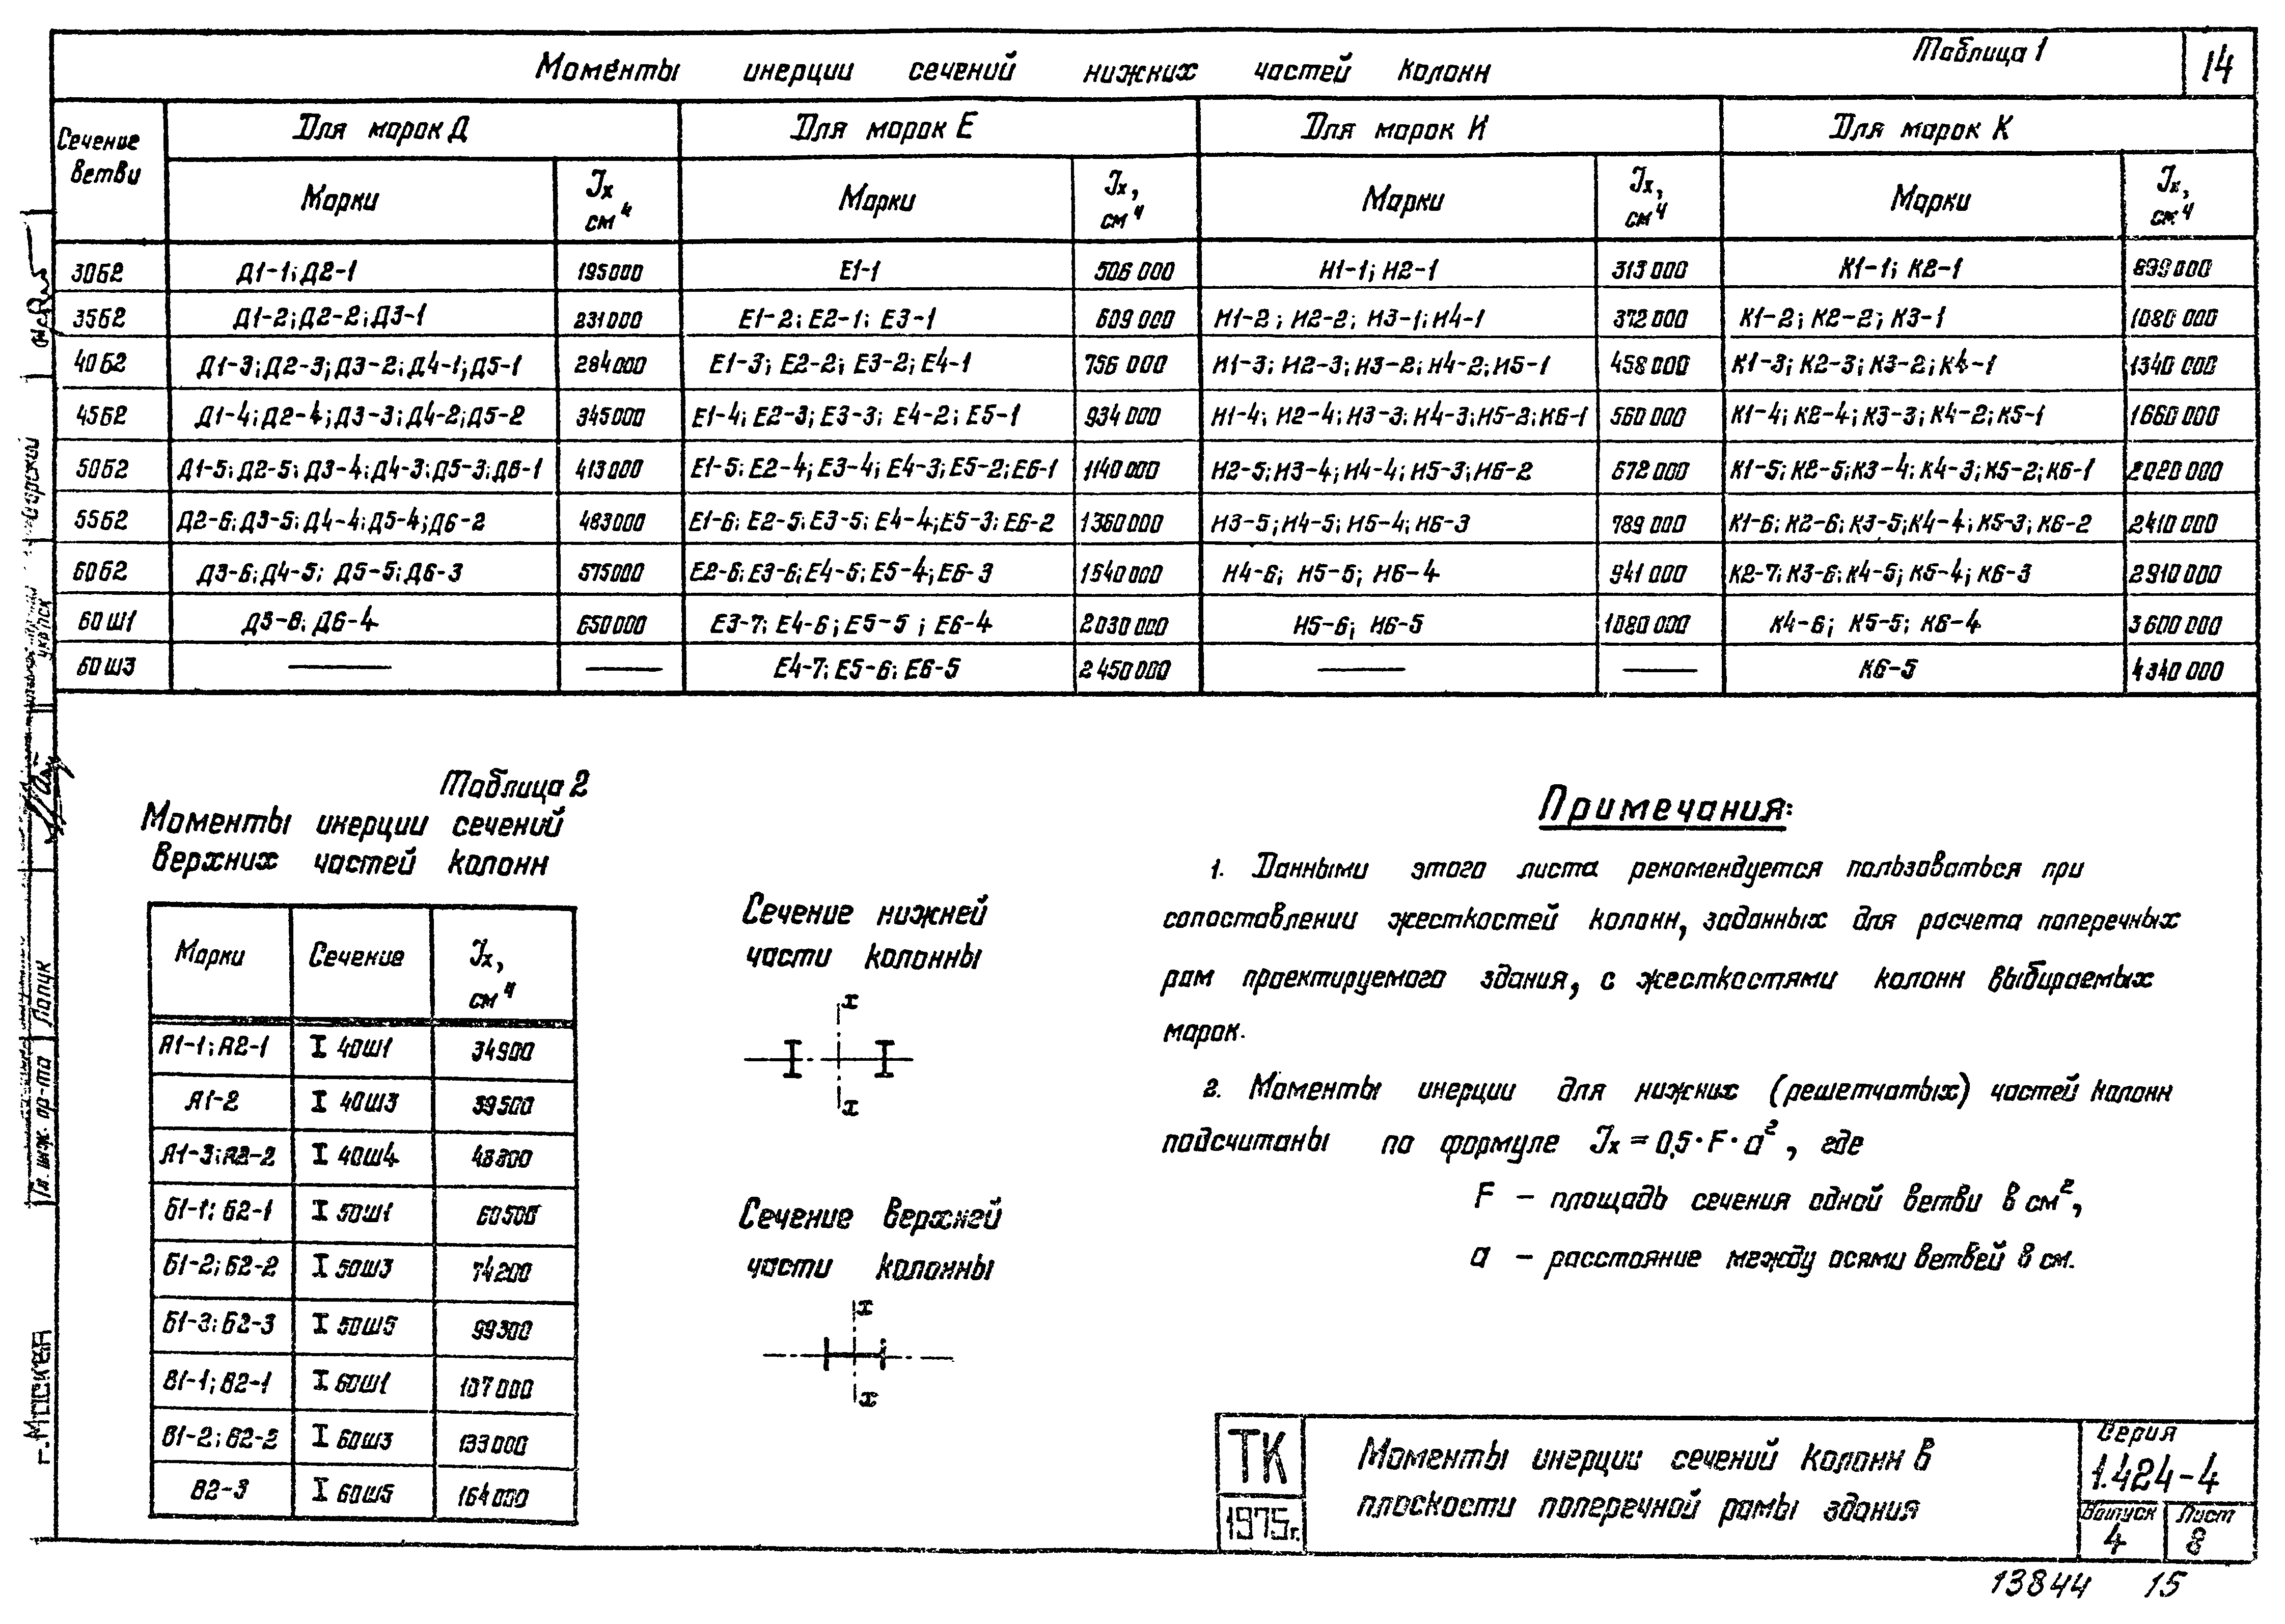 Моменты инерции сечений нижних частей колонн
Таблица 1
14
Сечение ветви | Для марок Д | Для марок Е | Для марок И | Для марок К
Марки | Jx см⁴ | Марки | Jx, см⁴ | Марки | Jx, см⁴ | Марки | Jx, см⁴
30Б2 | Д1-1; Д2-1 | 195000 | Е1-1 | 506 000 | И1-1; И2-1 | 313 000 | К1-1; К2-1 | 899 000
35Б2 | Д1-2; Д2-2; Д3-1 | 231000 | Е1-2; Е2-1; Е3-1 | 609 000 | И1-2; И2-2; И3-1; И4-1 | 372 000 | К1-2; К2-2; К3-1 | 1080 000
40Б2 | Д1-3; Д2-3; Д3-2; Д4-1; Д5-1 | 284000 | Е1-3; Е2-2; Е3-2; Е4-1 | 756 000 | И1-3; И2-3; И3-2; И4-2; И5-1 | 458 000 | К1-3; К2-3; К3-2; К4-1 | 1340 000
45Б2 | Д1-4; Д2-4; Д3-3; Д4-2; Д5-2 | 345000 | Е1-4; Е2-3; Е3-3; Е4-2; Е5-1 | 934 000 | И1-4; И2-4; И3-3; И4-3; И5-2; И6-1 | 560 000 | К1-4; К2-4; К3-3; К4-2; К5-1 | 1660 000
50Б2 | Д1-5; Д2-5; Д3-4; Д4-3; Д5-3; Д6-1 | 413000 | Е1-5; Е2-4; Е3-4; Е4-3; Е5-2; Е6-1 | 1140 000 | И2-5; И3-4; И4-4; И5-3; И6-2 | 672 000 | К1-5; К2-5; К3-4; К4-3; К5-2; К6-1 | 2020 000
55Б2 | Д2-6; Д3-5; Д4-4; Д5-4; Д6-2 | 483000 | Е1-6; Е2-5; Е3-5; Е4-4; Е5-3; Е6-2 | 1360000 | И3-5; И4-5; И5-4; И6-3 | 789 000 | К1-6; К2-6; К3-5; К4-4; К5-3; К6-2 | 2410 000
60Б2 | Д3-6; Д4-5; Д5-5; Д6-3 | 575000 | Е2-6; Е3-6; Е4-5; Е5-4; Е6-3 | 1640000 | И4-6; И5-5; И6-4 | 941 000 | К2-7; К3-6; К4-5; К5-4; К6-3 | 2910 000
60Ш1 | Д3-8; Д6-4 | 650000 | Е3-7; Е4-6; Е5-5; Е6-4 | 2030 000 | И5-6; И6-5 | 1080 000 | К4-6; К5-5; К6-4 | 3600 000
60Ш3 | — | — | Е4-7; Е5-6; Е6-5 | 2450000 | — | — | К6-5 | 4340 000
Таблица 2
Моменты инерции сечений
верхних частей колонн
Марки | Сечение | Jx, см⁴
А1-1; А2-1 | I 40Ш1 | 34900
А1-2 | I 40Ш3 | 39500
А1-3; А2-2 | I 40Ш4 | 48300
Б1-1; Б2-1 | I 50Ш1 | 60500
Б1-2; Б2-2 | I 50Ш3 | 74200
Б1-3; Б2-3 | I 50Ш5 | 99300
В1-1; В2-1 | I 60Ш1 | 107000
В1-2; В2-2 | I 60Ш3 | 133000
В2-3 | I 60Ш5 | 164000
Сечение нижней
части колонны
x
x
Сечение верхней
части колонны
x
x
Примечания:
1. Данными этого листа рекомендуется пользоваться при
сопоставлении жесткостей колонн, заданных для расчета поперечных
рам проектируемого здания, с жесткостями колонн выбираемых
марок.
2. Моменты инерции для нижних (решетчатых) частей колонн
подсчитаны по формуле Jx = 0,5·F·a², где
F – площадь сечения одной ветви в см²,
a – расстояние между осями ветвей в см.
ТК
1975г.
Моменты инерции сечений колонн в
плоскости поперечной рамы здания
Серия
1.424-4
Выпуск
4
Лист
8
13844 15
Гл. инж. пр-та
Лапук
г. Москва